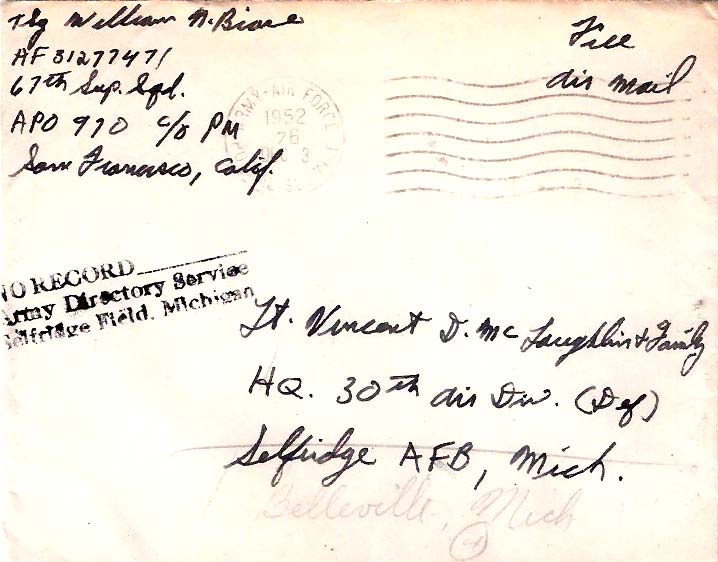 TSg William A.
AF 31277471
67th Sup. Sqd.
APO 970 c/o PM
San Francisco, Calif.
Free
Air Mail
ARMY-AIR FORCE
1952
26
3
NO RECORD
Army Directory Service
Selfridge Field, Michigan
Lt. Vincent D. McLaughlin + Family
HQ. 30th Air Div. (Def)
Selfridge AFB, Mich.
Belleville, Mich
4